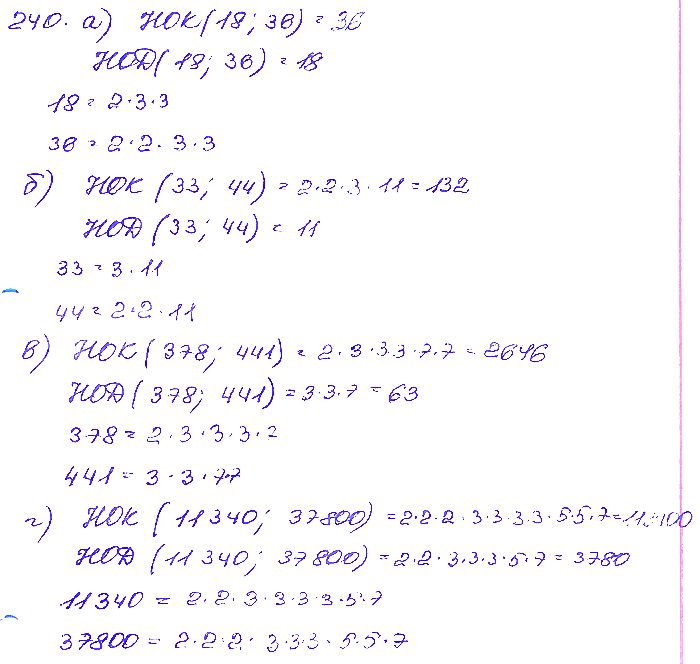 240. а) НОК(18; 36) = 36
НОД(18; 36) = 18
18 = 2·3·3
36 = 2·2·3·3
б) НОК (33; 44) = 2·2·3·11 = 132
НОД (33; 44) = 11
33 = 3·11
44 = 2·2·11
в) НОК(378; 441) = 2·3·3·3·7·7 = 2646
НОД(378; 441) = 3·3·7 = 63
378 = 2·3·3·3·7
441 = 3·3·7·7
г) НОК (11340; 37800) = 2·2·2·3·3·3·3·5·5·7 = 113400
НОД (11340; 37800) = 2·2·3·3·3·5·7 = 3780
11340 = 2·2·3·3·3·3·5·7
37800 = 2·2·2·3·3·3·5·5·7